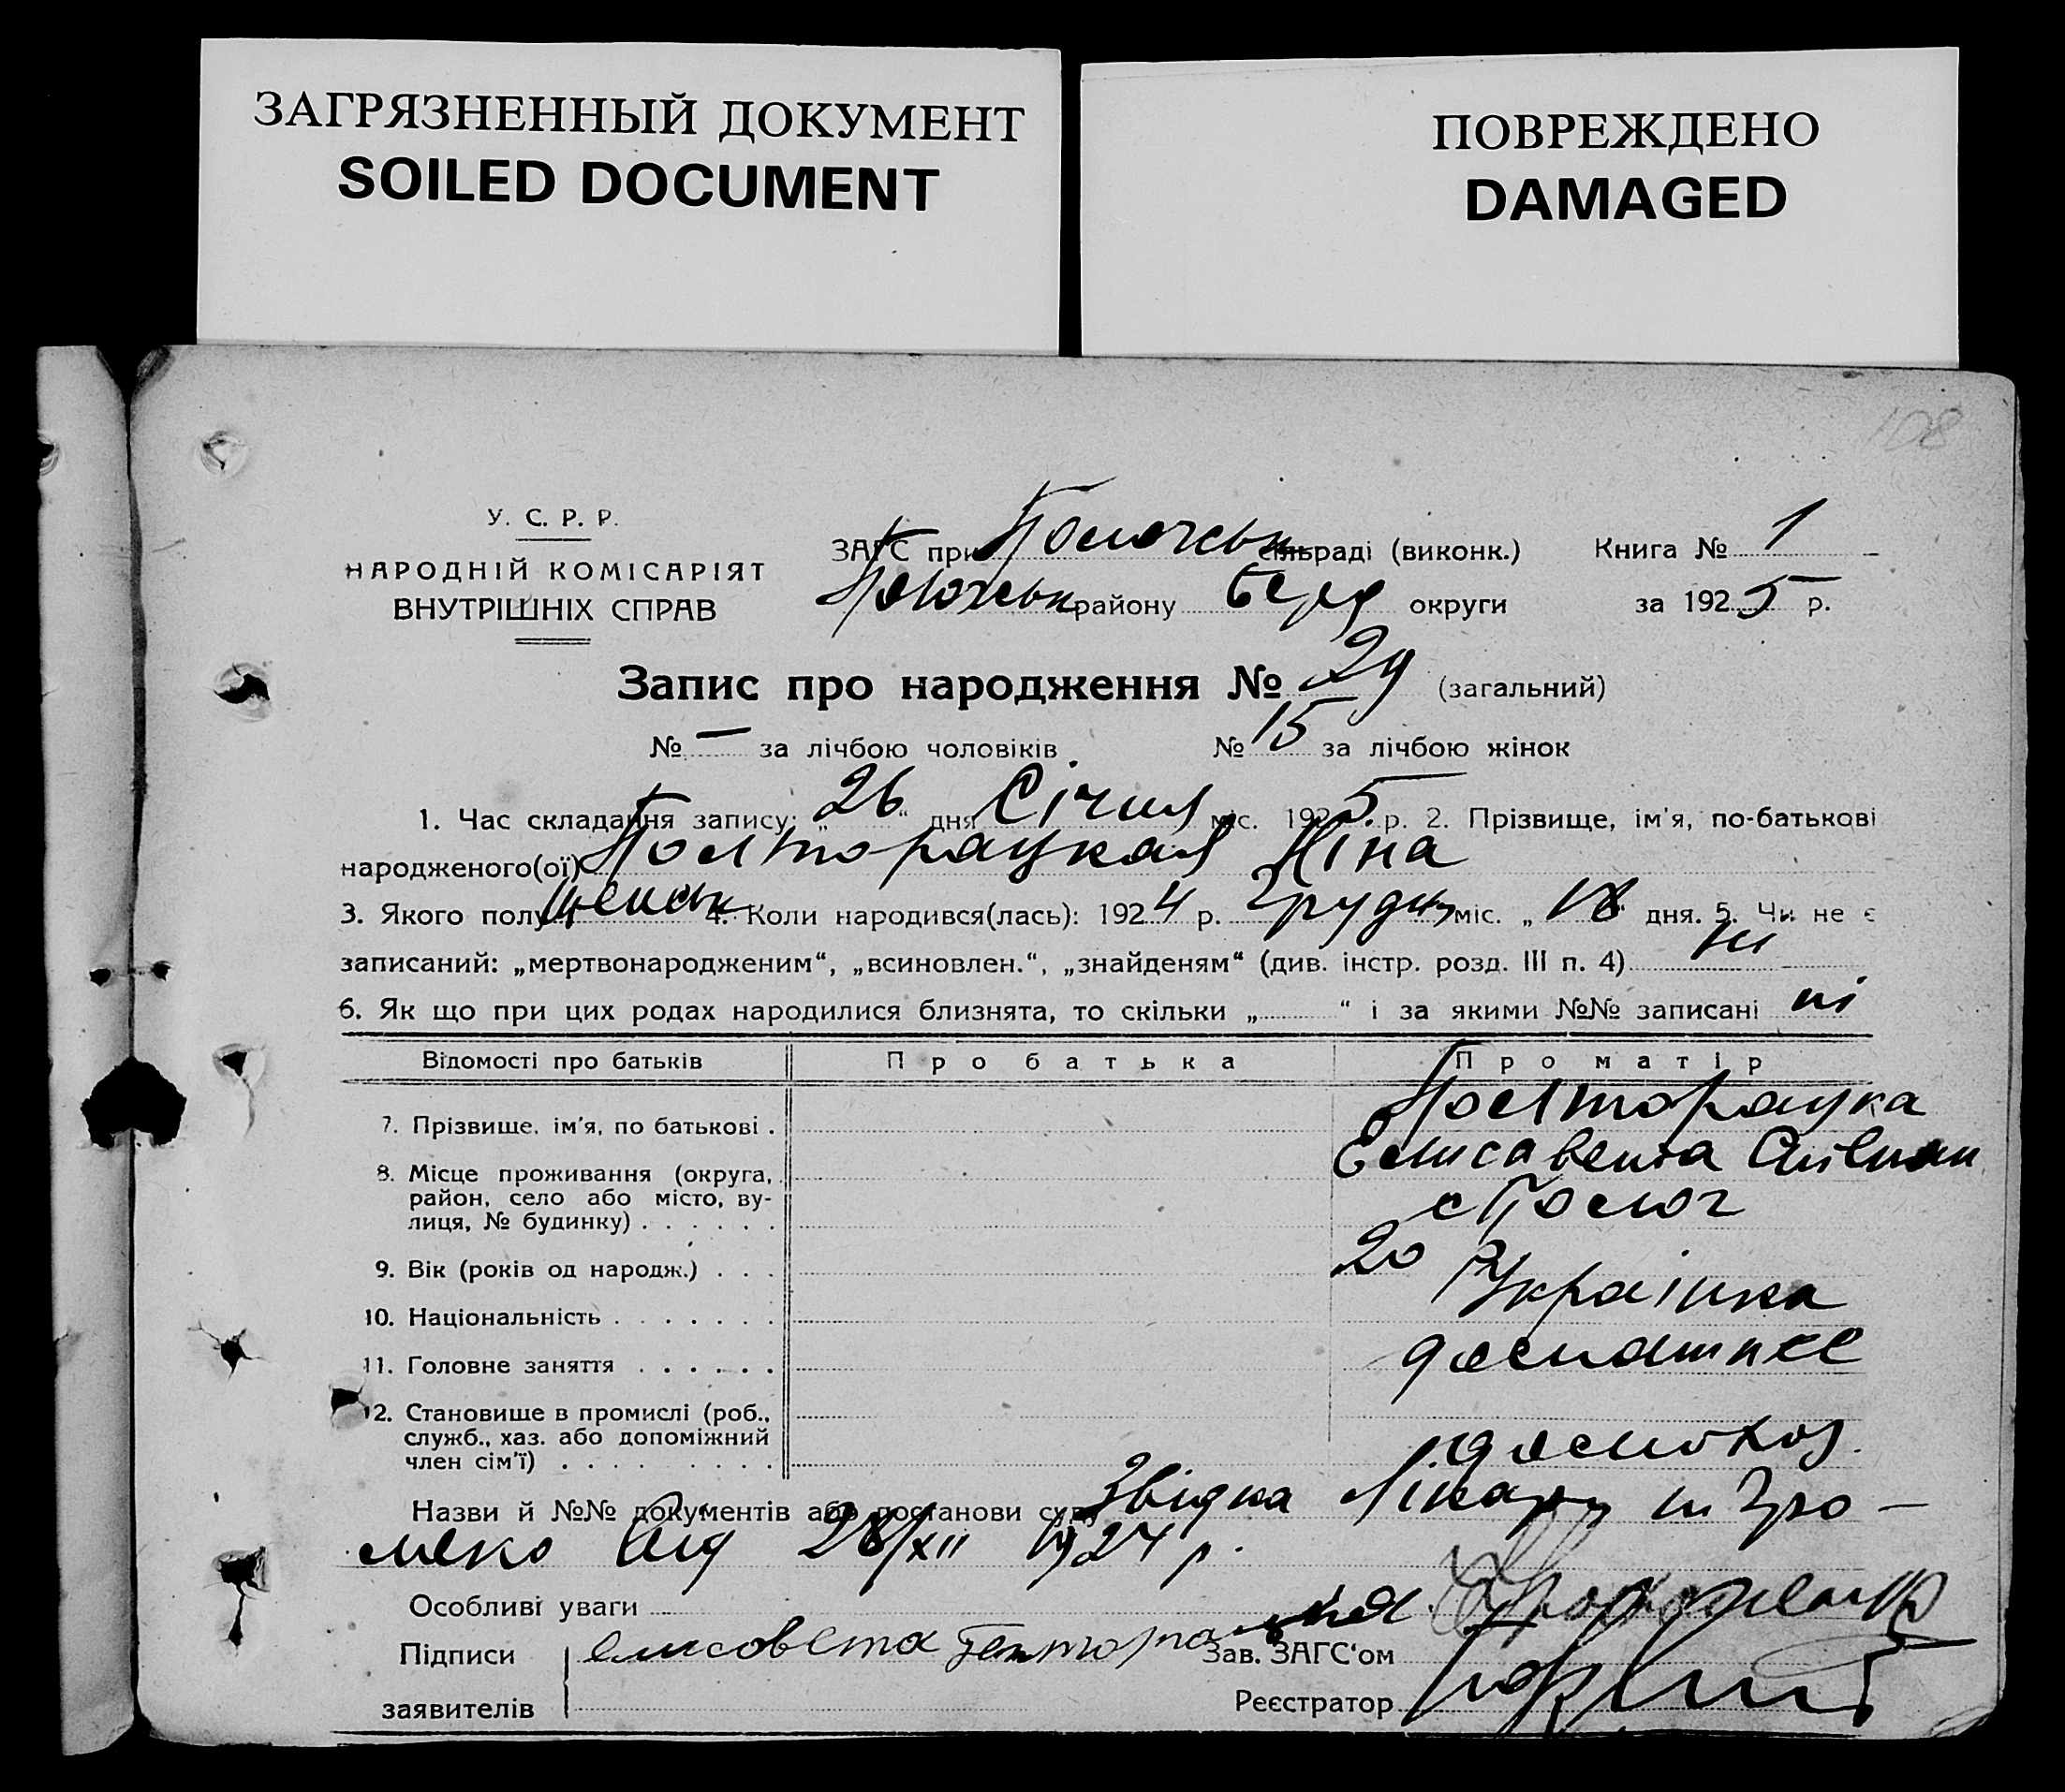 ЗАГРЯЗНЕННЫЙ ДОКУМЕНТ
SOILED DOCUMENT
ПОВРЕЖДЕНО
DAMAGED
108
У. С. Р. Р.
НАРОДНІЙ КОМІСАРІЯТ
ВНУТРІШНІХ СПРАВ
ЗАГС при сільраді (виконк.) Книга № 1
району Берд округи за 1925 р.
Запис про народження № 29 (загальний)
№ — за лічбою чоловіків № 15 за лічбою жінок
1. Час складання запису: „26“ дня Січня міс. 1925 р. 2. Прізвище, ім'я, по-батькові
народженого(ої) Полторацкая Ніна
3. Якого полу женськ 4. Коли народився(лась): 1924 р. Грудня міс. „18“ дня. 5. Чи не є
записаний: „мертвонародженим“, „всиновлен.“, „знайденям“ (див. інстр. розд. III п. 4) ні
6. Як що при цих родах народилися близнята, то скільки „ “ і за якими №№ записані ні
Відомості про батьків Про батька Про матір
7. Прізвище, ім'я, по батькові . Полторацка
Елисавента
8. Місце проживання (округа, район, село або місто, вулиця, № будинку) . . . . . . с Полог
9. Вік (років од народж.) . . . 20
10. Національність . . . . . . . Українка
11. Головне заняття . . . . . . домашнее
12. Становище в промислі (роб., служб., хаз. або допоміжний член сім'ї) . . . . . . . . .
Назви й №№ документів або постанови суду Звідка Лікаря
від 28/XII 1924 р.
Особливі уваги
Підписи заявителів елисовета
Зав. ЗАГС'ом
Реєстратор